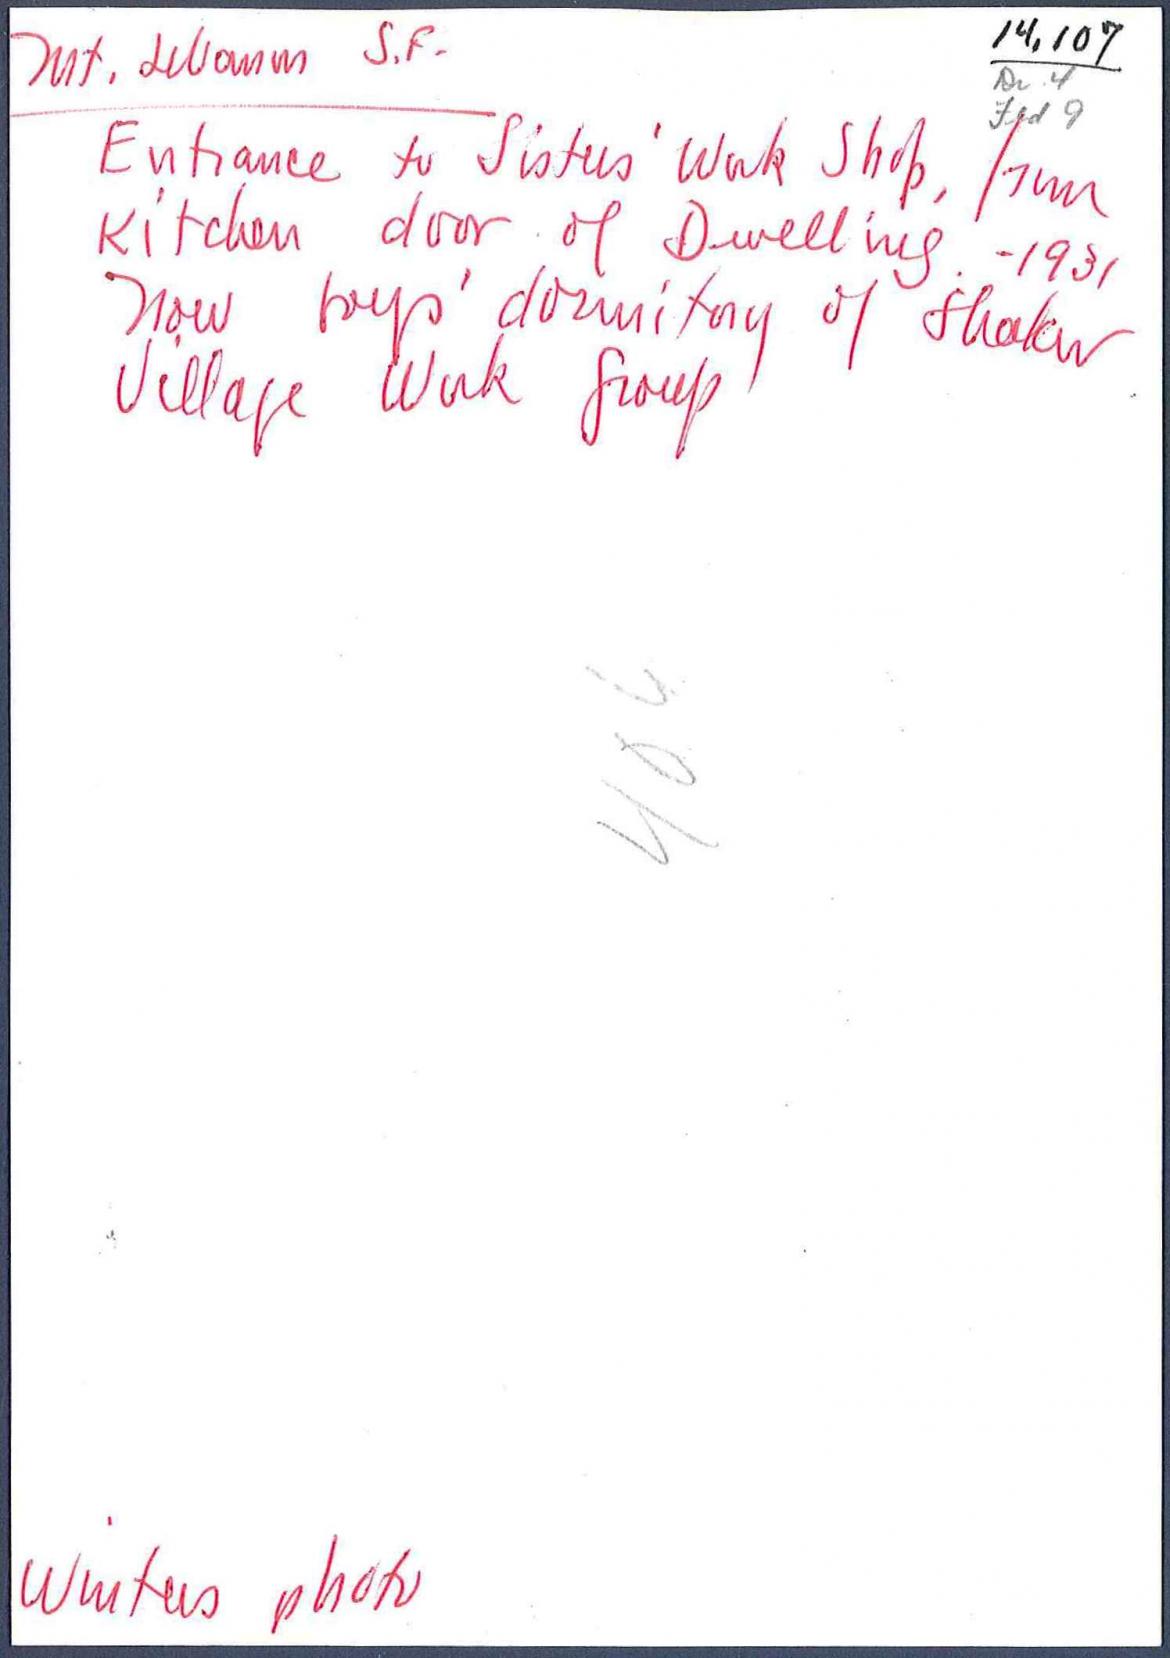 Mt. Lebanon S.F.
14,107
Dr. 4
Fld 9
Entrance to Sisters' Work Shop, from
Kitchen door of Dwelling. -1931
Now boys' dormitory of Shaker
Village Work Group
406
Winters photo